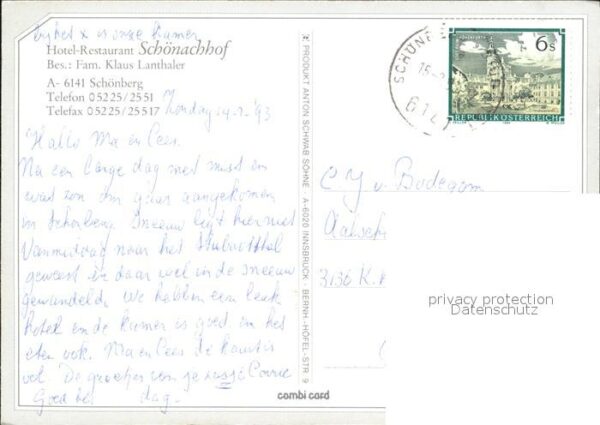 bij het x is onze kamer
Hotel-Restaurant Schönachhof
Bes.: Fam. Klaus Lanthaler
A- 6141 Schönberg
Telefon 05225/2551
Telefax 05225/25517
Zondag '93
Hallo Ma en Cees.
Na een lange dag met mist en
wat zon om 4 uur aangekomen
in Schönberg. Sneeuw ligt hier niet
Vanmiddag naar het Stubaital
geweest en daar wel in de sneeuw
gewandeld. We hebben een leuk
hotel en de kamer is goed en het
eten ook. Ma en Cees de kaart is
vol. De groetjes van je zusje Corrie
Goed dag.
PRODUKT ANTON SCHWAB SÖHNE · A-6020 INNSBRUCK · BERNH.-HÖFEL-STR. 9
combi card
SCHÖNB
15
6141
6 S
REPUBLIK ÖSTERREICH
C. J. v. Bodegom
3136 K.
privacy protection
Datenschutz